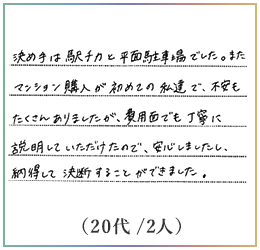 決め手は駅チカと平面駐車場でした。また
マンション購入が初めての私達で、不安も
たくさんありましたが、費用面でも丁寧に
説明していただけたので、安心しましたし、
納得して決断することができました。
(20代 /2人)